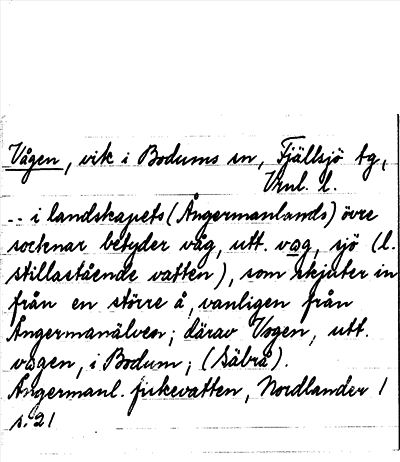 Vågen, vik i Bodums sn, Fjällsjö tg,
Vnl. l.
-- i landskapets (Ångermanlands) övre
socknar betyder våg, utt. vog, sjö (l.
stillastående vatten), som skjuter in
från en större å, vanligen från
Ångermanälven; därav Vogen, utt.
vogen, i Bodum; (Säbrå).
Ångermanl. fiskevatten, Nordlander 1
s. 21